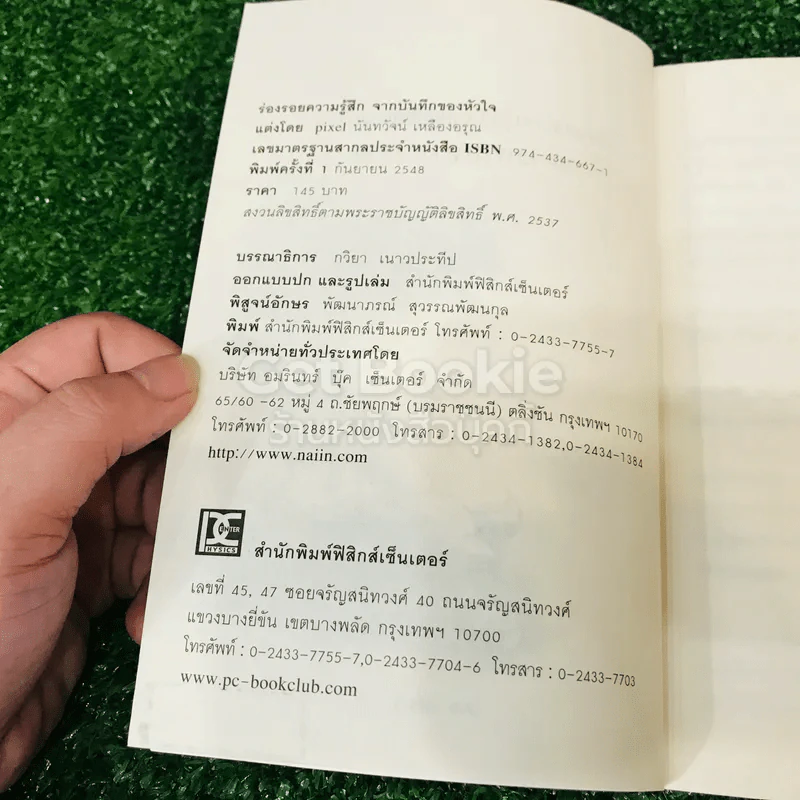 ร่องรอยความรู้สึก จากบันทึกของหัวใจ
แต่งโดย pixel นันทวัจน์ เหลืองอรุณ
เลขมาตรฐานสากลประจำหนังสือ ISBN 974-434-667-1
พิมพ์ครั้งที่ 1 กันยายน 2548
ราคา 145 บาท
สงวนลิขสิทธิ์ตามพระราชบัญญัติลิขสิทธิ์ พ.ศ. 2537
บรรณาธิการ กวิยา เนาวประทีป
ออกแบบปก และรูปเล่ม สำนักพิมพ์ฟิสิกส์เซ็นเตอร์
พิสูจน์อักษร พัฒนาภรณ์ สุวรรณพัฒนกุล
พิมพ์ สำนักพิมพ์ฟิสิกส์เซ็นเตอร์ โทรศัพท์ : 0-2433-7755-7
จัดจำหน่ายทั่วประเทศโดย
Get Bookie
บริษัท อมรินทร์ บุ๊ค เซ็นเตอร์ จำกัด
65/60 -62 หมู่ 4 ถ.ชัยพฤกษ์ (บรมราชชนนี) ตลิ่งชัน กรุงเทพฯ 10170
ร้านหนังสือบุ๊คกี้
โทรศัพท์ : 0-2882-2000 โทรสาร : 0-2434-1382,0-2434-1384
http://www.naiin.com
PC CENTER
PHYSICS
สำนักพิมพ์ฟิสิกส์เซ็นเตอร์
เลขที่ 45, 47 ซอยจรัญสนิทวงศ์ 40 ถนนจรัญสนิทวงศ์
แขวงบางยี่ขัน เขตบางพลัด กรุงเทพฯ 10700
โทรศัพท์ : 0-2433-7755-7,0-2433-7704-6 โทรสาร : 0-2433-7703
www.pc-bookclub.com